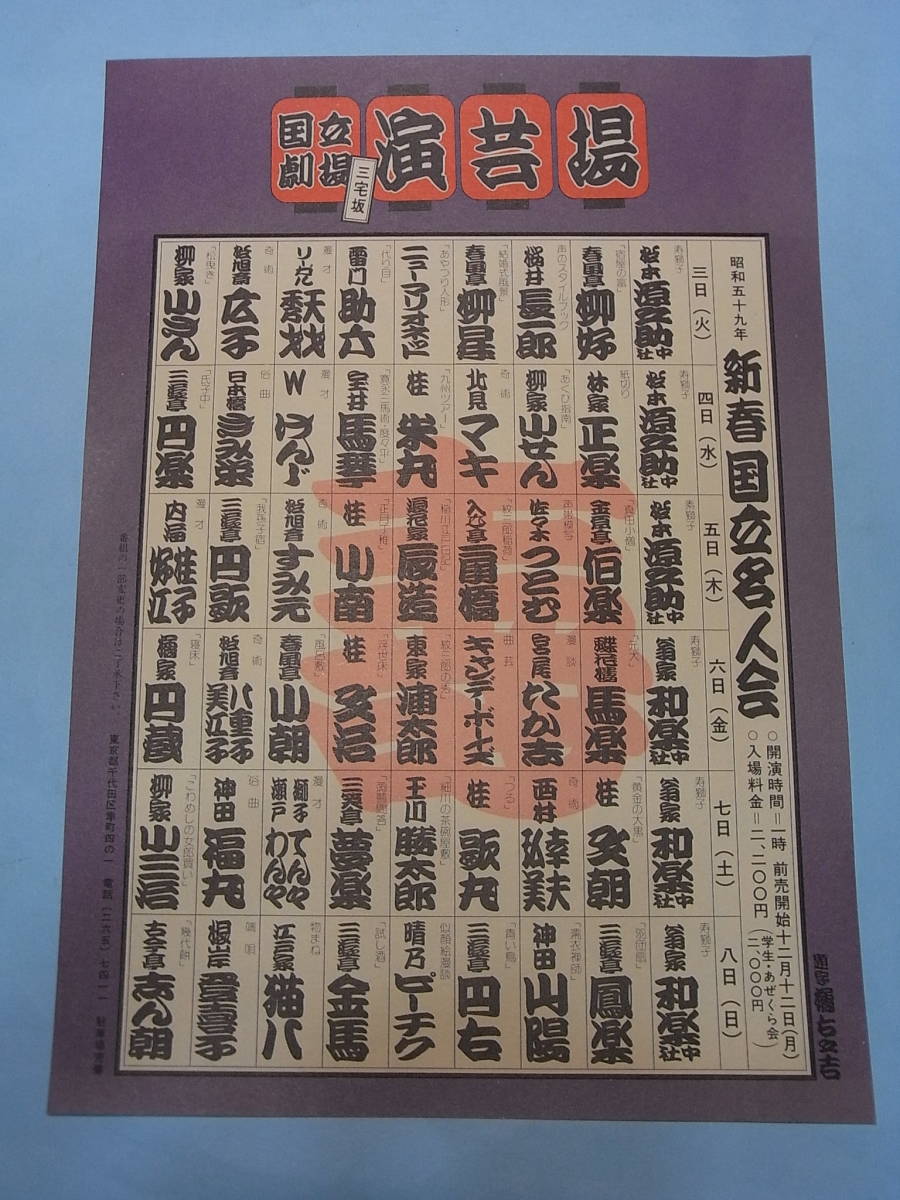 国立劇場
演芸場
三宅坂
昭和五十九年
新春国立名人会
○開演時間=一時 前売開始十二月十二日(月)
○入場料金=二、二〇〇円(学生・あぜくら会 二、〇〇〇円)
三日(火)
寿獅子
松本源之助社中
「宿屋の富」
春風亭柳好
声のスタイルブック
桜井長一郎
「結婚式風景」
春風亭柳昇
「あやつり人形」
ニューマリオネット
「代り目」
雷門助六
漫才
リーガル天才 秀才
奇術
松旭斎広子
「松曳き」
柳家小さん
四日(水)
寿獅子
松本源之助社中
紙切り
林家正楽
「あくび指南」
柳家小せん
奇術
北見マキ
「九州ツアー」
桂米丸
「寛永三馬術・度々平」
宝井馬琴
漫才
Wけんじ
俗曲
日本橋きみ栄
「氏子中」
三遊亭円楽
五日(木)
寿獅子
松本源之助社中
「真田小僧」
金原亭伯楽
声帯模写
佐々木つとむ
「紋三郎稲荷」
入船亭扇橋
「稲川江戸日記」
浪花家辰造
「正月丁稚」
桂小南
奇術
松旭斎すみえ
「我孫子宿」
三遊亭円歌
漫才
内海桂子 好江
六日(金)
寿獅子
翁家和楽社中
「元犬」
蝶花楼馬楽
漫談
宮尾たか志
曲芸
キャンデーボーイズ
「紋三郎の秀」
東家浦太郎
「浮世床」
桂文治
「風呂敷」
春風亭小朝
奇術
松旭斎八重子 美江子
「寝床」
橘家円蔵
七日(土)
寿獅子
翁家和楽社中
「黄金の大黒」
桂文朝
奇術
西村幸夫 弘美
「つる」
桂歌丸
「細川の茶碗屋敷」
玉川勝太郎
「蒟蒻問答」
三笑亭夢楽
漫才
獅子てんや 瀬戸わんや
俗曲
神田福丸
「こわめしの女郎買い」
柳家小三治
八日(日)
寿獅子
翁家和楽社中
「羽団扇」
三遊亭鳳楽
神田山陽
「青い鳥」
三遊亭円右
似顔絵漫談
晴乃ピーチク
「試し酒」
三遊亭金馬
物まね
江戸家猫八
端唄
根岸登喜子
「幾代餅」
古今亭志ん朝
寿
題字 橘右之吉
番組の一部変更の場合はご了承下さい。
東京都千代田区隼町四の一 電話(二六五)七四一一 駐車場完備